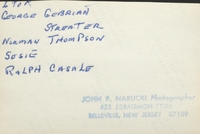 L TO R
GEORGE GEBRIAN
STREATER
NORMAN THOMPSON
SUSIE
RALPH CASALE
JOHN P. NARUCKI Photographer
BELLEVILLE, NEW JERSEY 07109